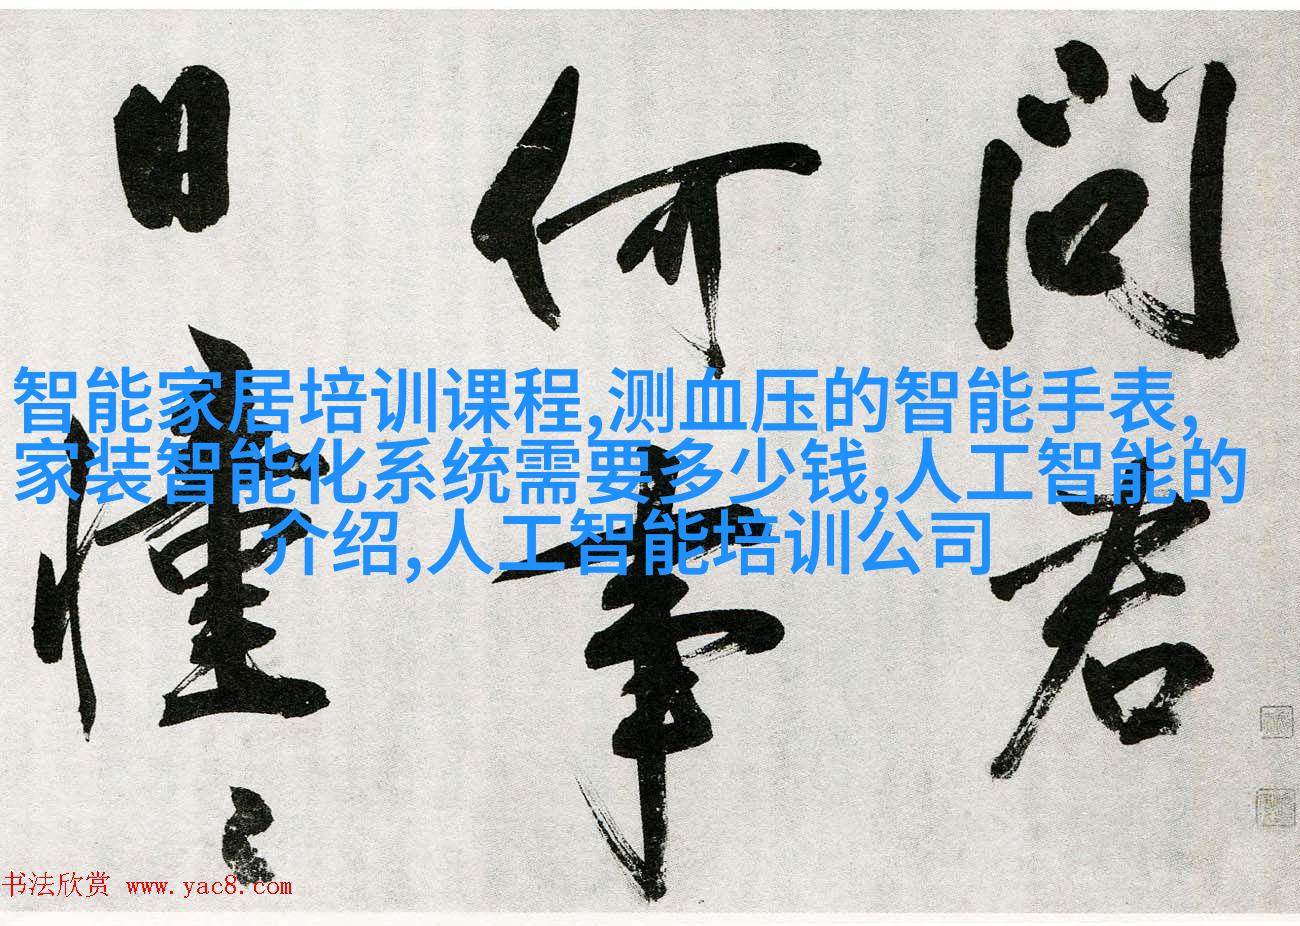 问君
何事
日憧々
智能家居培训课程,测血压的智能手表,
家装智能化系统需要多少钱,人工智能的
介绍,人工智能培训公司
书法欣赏 www.yac8.com